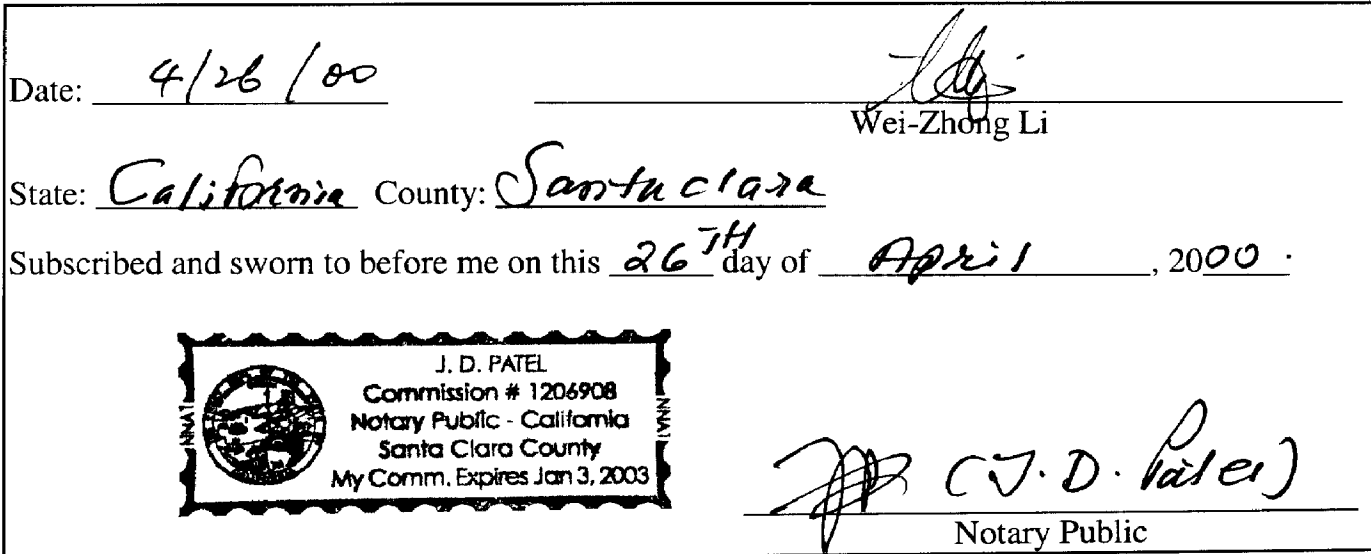 Date: 4/26/00
Wei-Zhong Li
State: California County: Santa clara
Subscribed and sworn to before me on this 26TH day of April, 2000.
J. D. PATEL
Commission # 1206908
Notary Public - California
Santa Clara County
My Comm. Expires Jan 3, 2003
(J. D. Patel)
Notary Public